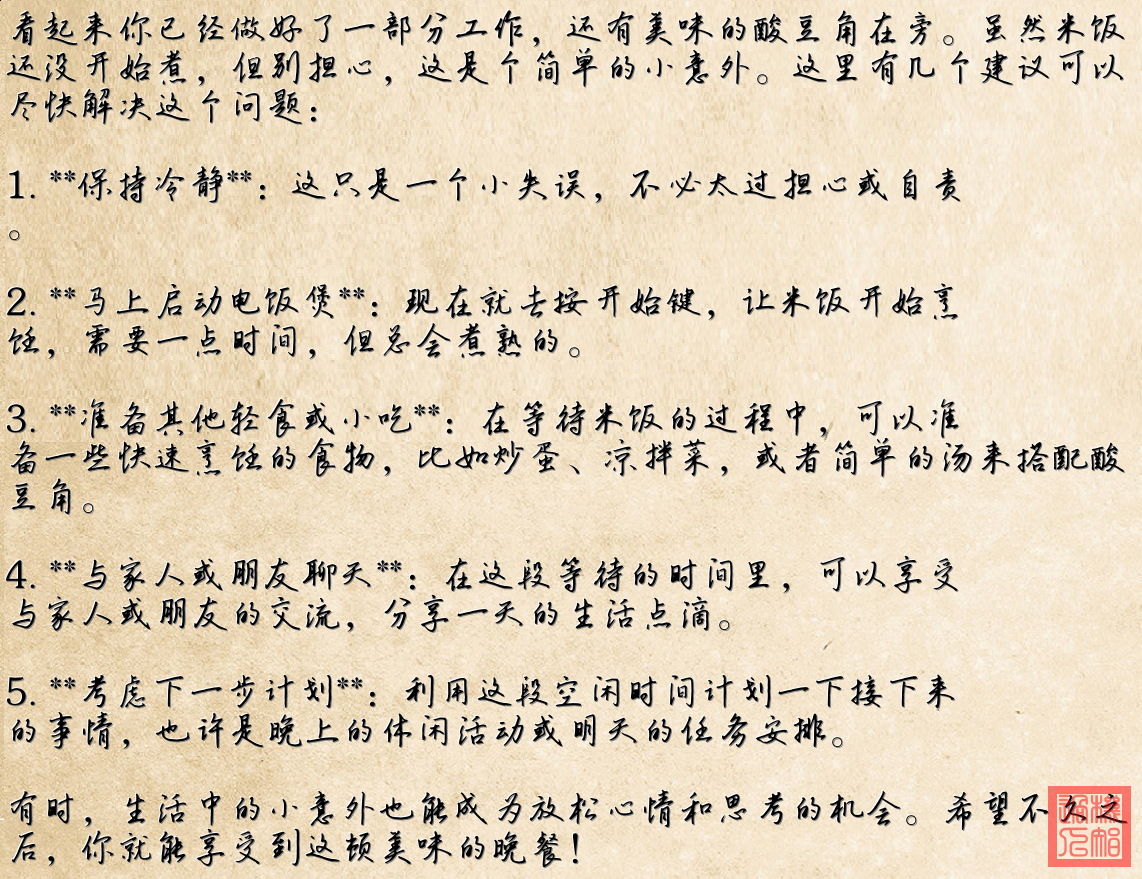 看起来你已经做好了一部分工作，还有美味的酸豆角在旁。虽然米饭
还没开始煮，但别担心，这是个简单的小意外。这里有几个建议可以
尽快解决这个问题：
1. **保持冷静**：这只是一个小失误，不必太过担心或自责
。
2. **马上启动电饭煲**：现在就去按开始键，让米饭开始烹
饪，需要一点时间，但总会煮熟的。
3. **准备其他轻食或小吃**：在等待米饭的过程中，可以准
备一些快速烹饪的食物，比如炒蛋、凉拌菜，或者简单的汤来搭配酸
豆角。
4. **与家人或朋友聊天**：在这段等待的时间里，可以享受
与家人或朋友的交流，分享一天的生活点滴。
5. **考虑下一步计划**：利用这段空闲时间计划一下接下来
的事情，也许是晚上的休闲活动或明天的任务安排。
有时，生活中的小意外也能成为放松心情和思考的机会。希望不久之
后，你就能享受到这顿美味的晚餐！